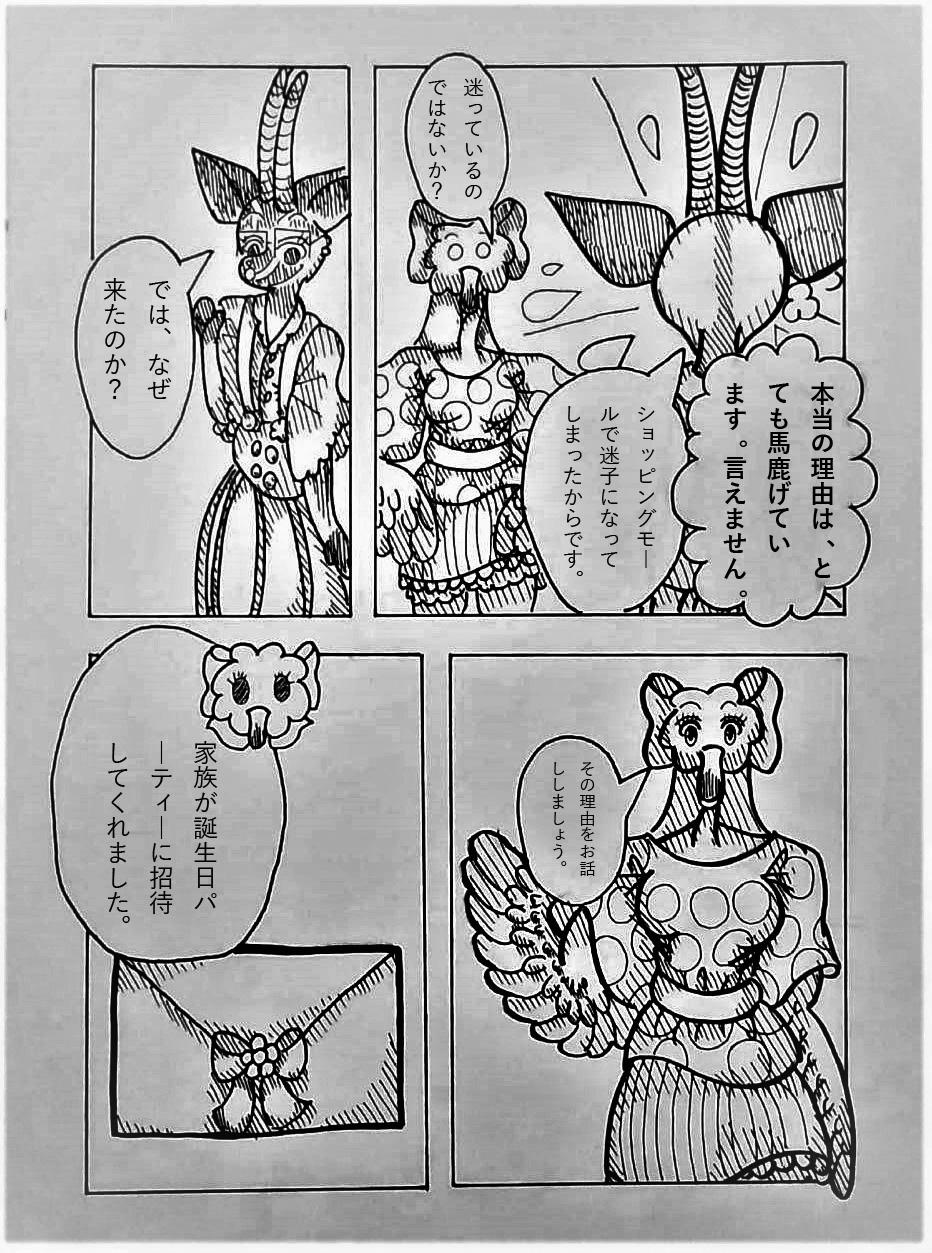 本当の理由は、と
ても馬鹿げてい
ます。言えません。
ショッピングモー
ルで迷子になって
しまったからです。
迷っているの
ではないか？
では、なぜ
来たのか？
その理由をお話
ししましょう。
家族が誕生日パ
ーティーに招待
してくれました。